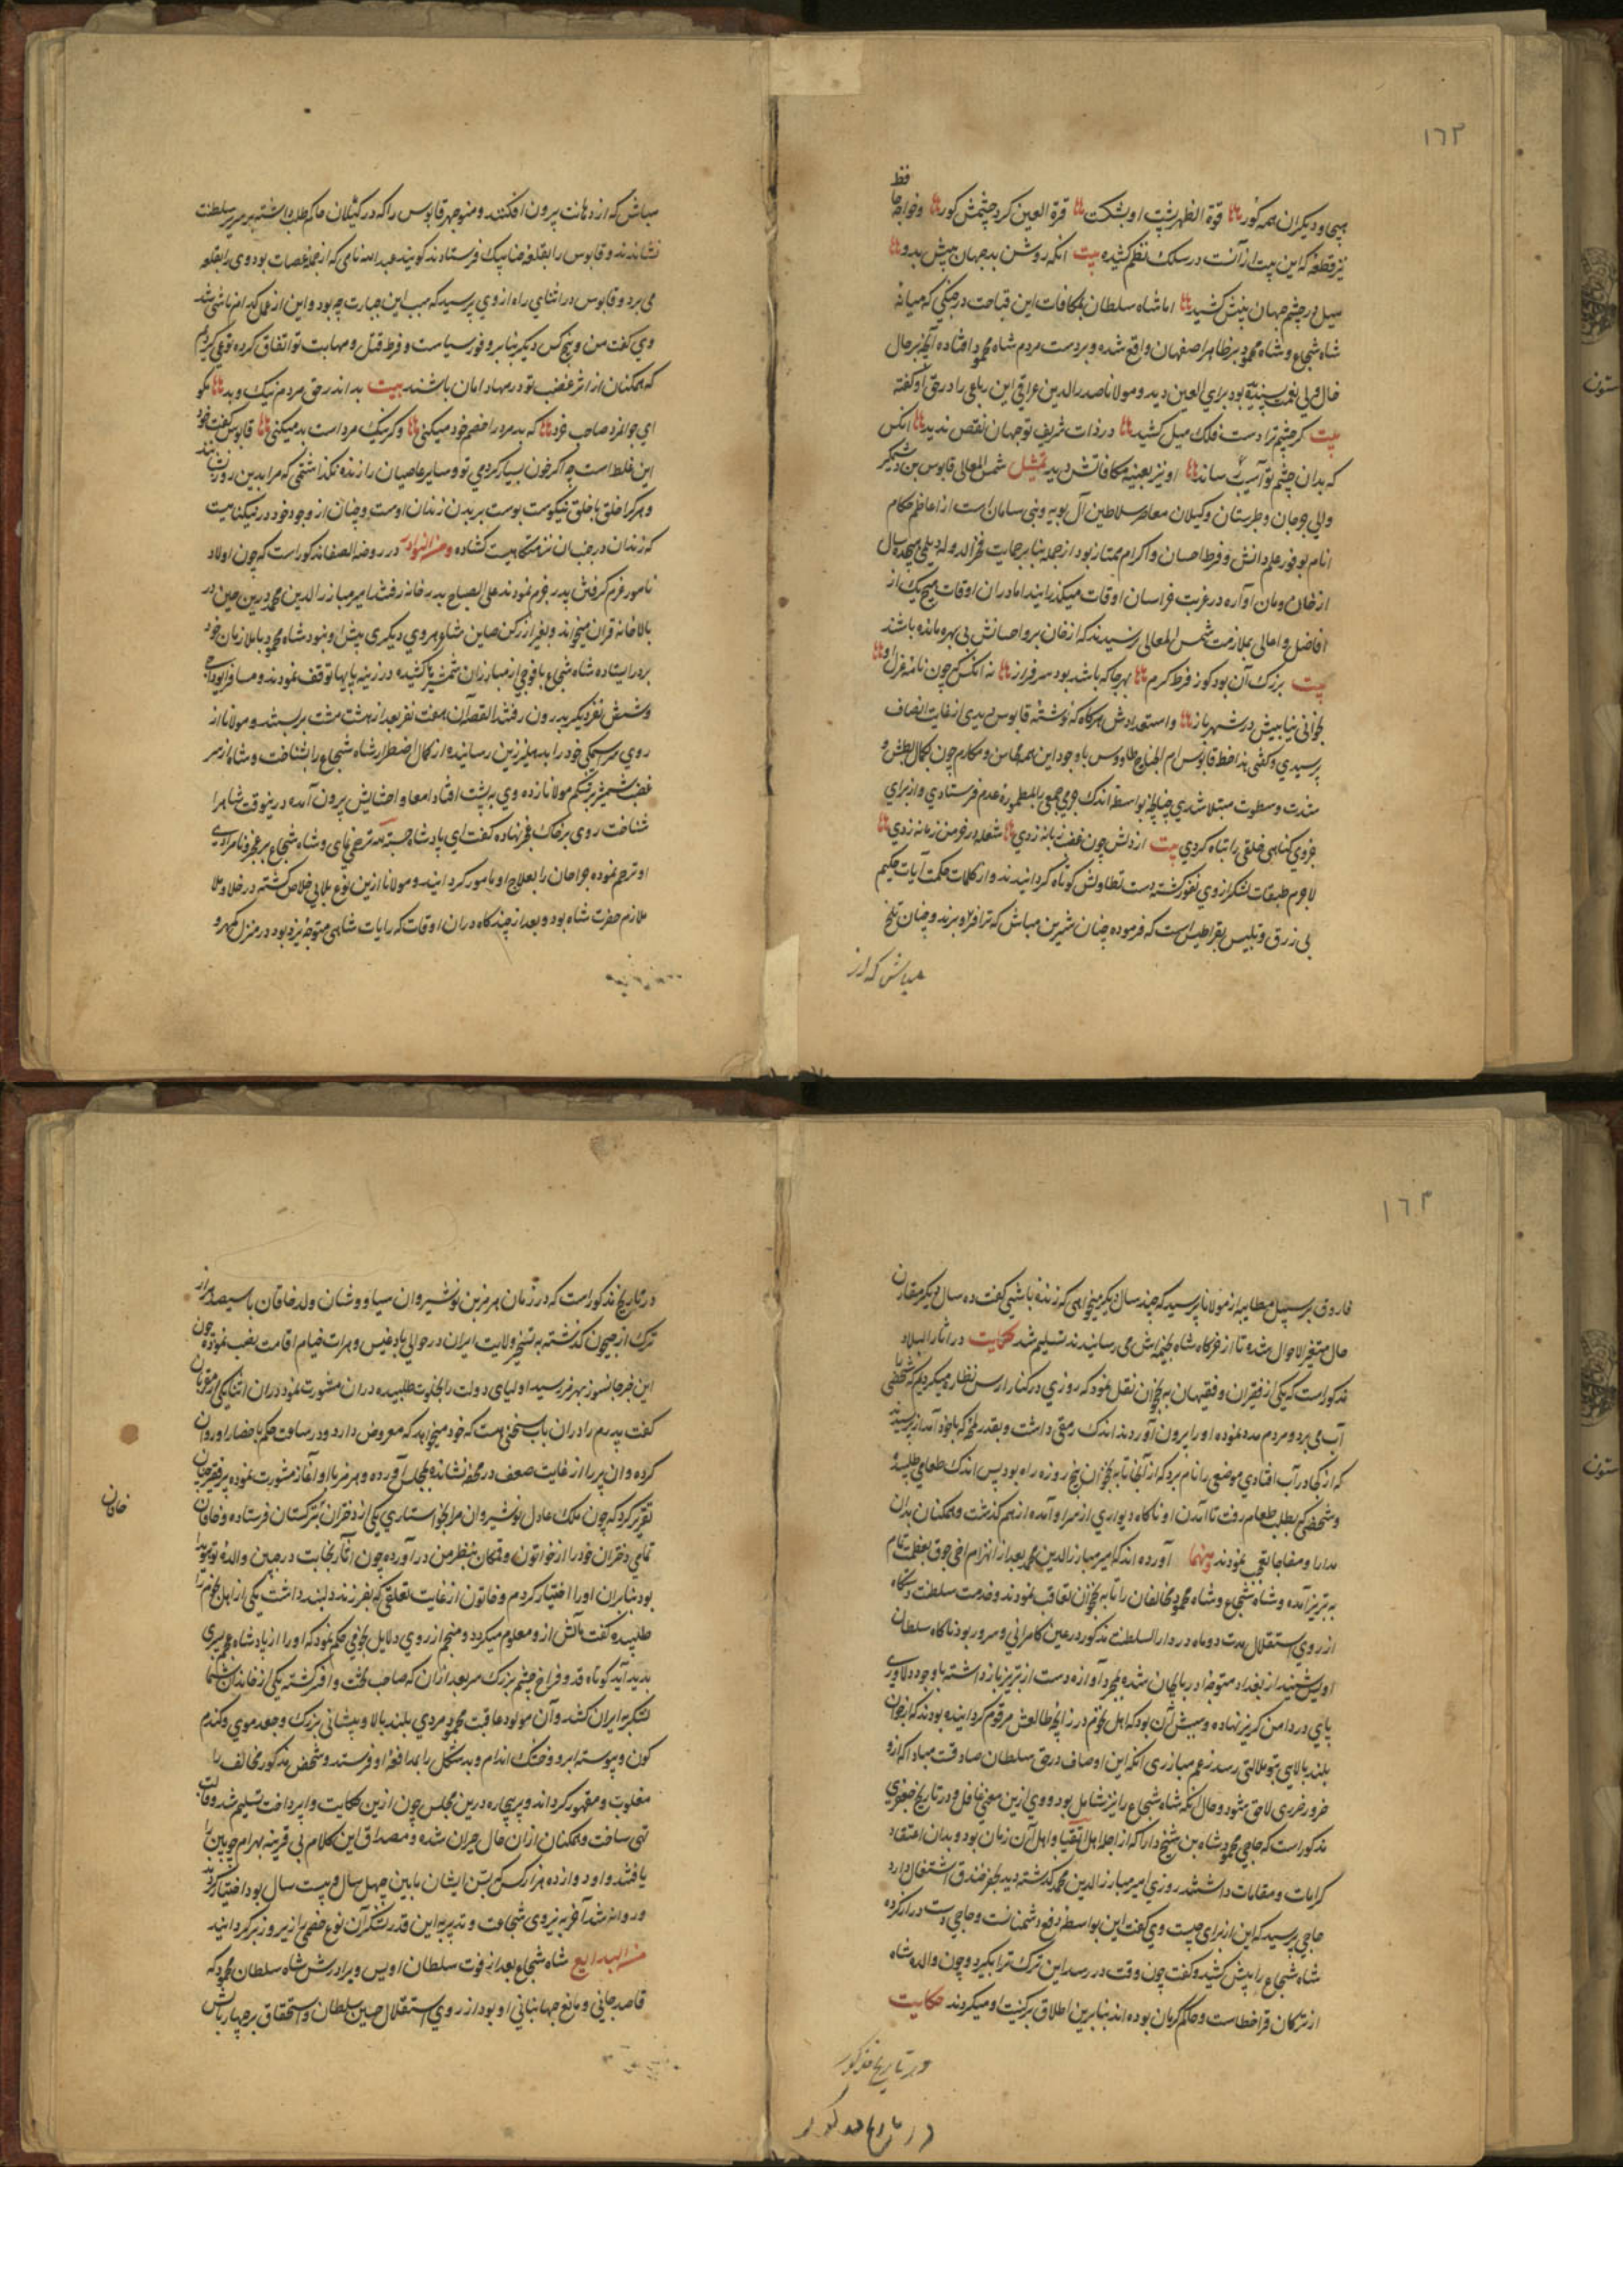 ١٦٣
فظ
هیچ او دیگران همه کور قوة الظهر پشت او بشکست قرة العین کرد چشمش کور و خواجه حا
نیز قطعه که این بیت از آنست در سلک نظم کشیده بیت انکه روشن بد جهان بینش بدو
میل در چشم جهان بینش کشید اما شاه سلطان بمکافات این قباحت در جنکی که میانه
شاه شجاع و شاه محمود بر ظاهر اصفهان واقع شده و بر دست مردم شاه محمود افتاده آنچه بر حال
خال و ولی نعمت پسندیده بود برای العین دید و مولانا صدر الدین عراقی این رباعی را در حق او کفته
بیت کر چشم ترا دست فلک میل کشید در ذات شریف تو جهان نقص ندید انکس
که بدان چشم تو آسیب رساند او نیز بعینه مکافاتش دید تمثیل شمس المعالی قابوس بن وشمکیر
والی جرجان و طبرستان و کیلان معاصر سلاطین آل بویه و بنی سامان است از اعاظم حکام
انام بوفور علم و دانش و فرط احسان و اکرام ممتاز بود از جمله بنا بر حمایت فخر الدوله دیلمی هیجده سال
از خان و مان آواره در غربت خراسان اوقات میکذرانید اما در ان اوقات هیچ یک از
افاضل و اعالی بملازمت شمس المعالی نرسیدند که از خوان بر و احسانش بی بهره مانده باشند
بیت بزرک آن بود کوز فرط کرم بهر جا که باشد بود سرفراز نه انکس که چون نامه عزل او
بخوانی نیابیش در شهر باز و استعدادش هرکاه که نوشته قابوس دیدی از غایت انصاف
پرسیدی و کفتی هذا خط قابوس ام جناح طاووس با وجود این همه محاسن و مکارم چون بکمال بطش و
شدت و سطوت مبتلا شدی چنانچه بواسطه اندک جرمی جمعی را بمطموره عدم فرستادی و از برای
جزوی کناهی خلقی را تباه کردی بیت از دلش چون غضب زبانه زدی شعله در خرمن زمانه زدی
لاجرم طبقات لشکر از وی نفور کشته دست تطاولش کوتاه کردانیدند و از کلمات حکمت آیات حکیم
بی زرق و تلبیس بقراطیس است که فرموده چنان شیرین مباش که ترا فرو برند و چنان تلخ
مباش که از
مباش که از دهانت بیرون افکنند و منوچهر قابوس را که در کیلان حاکم طلب داشته بر سریر سلطنت
نشاندند و قابوس را بقلعه جناشک فرستادند کویند عبدالله نامی که از جمله عصات بود وی را بقلعه
می برد و قابوس در اثنای راه از وی پرسید که سبب این جسارت چه بود و این از عمل کدام ناشی شد
وی کفت من و پنج کس دیکر بنا بر وفور سیاست و فرط قتل و مهابت تو اتفاق کرده توقی کردیم
که همکنان از اثر غضب تو در مهاد امان باشند بیت بد اندر حق مردم نیک و بد مکو
ای جوانمرد صاحب خرد که بد مرد را خصم خود میکنی وکر نیک مرد است بد میکنی قابوس کفت خود
این غلط است چه اکر خون بسیار کردمی تو و سایر عاصیان را زنده نکذاشتمی که مرا بدین روز
و هرکرا خلق با خلق نیکوست پوست بر بدن زندان اوست و چنان از وجود خود در تنکنائیست
که زندان در جنب آن نزهتکاهیست کشاده و من النوادر در روضة الصفا مذکور است که چون اولاد
نامور عزم کرفتن پدر جزم نمودند علی الصباح بدر خانه رفتند امیر مبارز الدین محمد درین حین در
بالا خانه قرآن میخواند و بغیر از رکن صاین شاعر هروی دیکری پیش او نبود شاه محمود با ملازمان خود
بر در ایستاده شاه شجاع با فوجی از مبارزان شمشیر کشیده در زینه پایها توقف نمودند و مسافر ایوداجی
و شش نفر دیکر بدرون رفتند القصه آن هفت نفر بعد از هشت مشت بر بستند و مولانا از
روی سراسیمکی خود را بدهلیز زمین رسانید و از کمال اضطرار شاه شجاع را بشناخت و شاه از سر
غضب شمشیر بر شکم مولانا زده وی به پشت افتاد امعا و احشایش بیرون آمد درینوقت شاه را
شناخت روی بر خاک عجز نهاده کفت ای پادشاه حسبة لله ترحمی نمای و شاه شجاع بر عجز و نامرادی
او ترحم نموده جراحان را بعلاج او مامور کردانید و مولانا ازین نوع بلایی خلاص کشته در خلا و ملا
ملازم حضرت شاه بود و بعد از چندکاه در ان اوقات که رایات شاهی متوجه یزد بود در منزل مهرو
١٦٤
فاروق بر سبیل مطایبه از مولانا پرسید که چند سال دیکر میخواهی که زنده باشی کفت ده سال دیکر مقارن
حال متغیر الاحوال شده تا از خرکاه شاه بخیمه اش می رسانیدند تسلیم شد حکایت در آثار البلاد
مذکور است که یکی از فقیران و فقیهان نخجوان نقل نمود که روزی در کنار ارس نظاره میکردیم که شخصی را
آب می برد و مردم مدد نموده او را بیرون آوردند اندک رمقی داشت و بقدر لمحه که با خود آمد از پرسیدند
که از کجا در آب افتادی موضعی را نام برد که از آنجا تا به نخجوان پنج روزه راه بود پس اندک طعامی طلبید
و شخصی که بطلب طعام رفت تا آمدن او ناکاه دیواری از سر او آمده از هم کذشت و همکنان بدان
مدارا و مفاجا تعجب نمودند و منها آورده اند که امیر مبارز الدین محمد بعد از انهزام اخی جوق بعظمت تمام
به تبریز آمده و شاه شجاع و شاه محمود مخالفان را تا به نخجوان تعاقب نمودند و خدمت سلطنت دستکاه
از روی استقلال مدت دو ماه در دار السلطنت مذکور در عین کامرانی و سرور بود ناکاه سلطان
اویس شنید از بغداد متوجه اذربایجان شده بمجرد آوازه دست از تبریز باز داشته با وجود دلاوری
پای در دامن کریز نهاده و سببش آن بود که اهل نجوم در زایچه طالعش مرقوم کردانیده بودند که از جوان
بلند بالایی بتو ملالتی رسد زعم مبارزی انکه این اوصاف در حق سلطان صادقست مبادا که ازو
ضرر ضرری لاحق شود و حال آنکه شاه شجاع را نیز شامل بود و وی ازین معنی غافل و در تاریخ جعفری
مذکور است که حاجی محمود شاه بن شیخ دارا که از اجله اهل اتقیا و اهل آن زمان بود و بدان اعتقاد
کرامات و مقامات داشتند روزی امیر مبارز الدین محمد که کذشته دید بحفر خندق اشتغال دارد
حاجی پرسید که این از برای چیست وی کفت این بواسطه دفع دشمنانست و حاجی دست دراز کرده
شاه شجاع را پیش کشید و کفت چون وقت در رسد این ترک ترا بکیرد و چون والده شاه
از ترکان قراخطاست و حاکم کرمان بوده اند بنابرین اطلاق ترکیت او میکردند حکایت
در تاریخ مذکور
در تاریخ مذکور
در تاریخ مذکور است که در زمان هرمز بن نوشیروان سیاووشان ولد خاقان با سیصد هزار
ترک از جیحون کذشته به تسخیر ولایت ایران در حوالی بادغیس و هرات خیام اقامت نصب نموده چون
این خبر جانسوز بهرمز رسید اولیای دولت را بخلوت طلبیده در ان مشورت نمود در ان اثنا یکی از مقربان
کفت پدرم را در ان باب سخنی هست که خود میخواهد که معروض دارد و در ساعت حکم باحضار او روان
کرده و ان پیر را از غایت ضعف در محفه نشانده بمجلس آورده و هرمز با او آغاز مشورت نموده پیر فقیر چنان
تقریر کرد که چون ملک عادل نوشیروان مرا بخواستاری یکی از دختران بترکستان فرستاده و خاقان
خاقان
تمامی دختران خود را از خواتون و قمکان بنظر من در آورده چون آثار نجابت در جبین والده تو هویدا
بود بنابران او را اختیار کردم و خاتون از غایت تعلقی که بفرزند دلبند داشت یکی از اهل نجوم را
طلبیده کفت مآلش ازو معلوم میکردد و منجم از روی دلایل نجومی حکم نمود که او را از پادشاه عجم پسری
پدید آید کوتاه قد و فراخ چشم بزرک سر بعد از ان که صاحب تخت و افسر کشته یکی از خاندان شما
لشکر به ایران کشد و آن مولود عاقبت محمود مردی بلند بالا و پیشانی بزرک و جعد موی و کندم
کون و پیوسته ابرو و خشک اندام و بد شکل را بمدافعه او فرستد و شخص مذکور مخالف را
مغلوب و مقهور کرداند و پیر بیچاره درین مجلس چون ازین حکایت وا پرداخت تسلیم شد و قالب
تهی ساخت و همکنان از ان حال حیران شده و مصداق این کلام بی قرینه بهرام چوبین را
یافتند و او دوازده هزار کس که سن ایشان ما بین چهل سال و بیست سال بود اختیار کرد
و روانه شد آخر به نیروی شجاعت و تدبیر به این قدر لشکر آن نوع خصمی را زیر و زبر کردانید
من البدایع شاه شجاع بعد از فوت سلطان اویس و برادرش شاه سلطان محمود که
قاصد جانی و مانع جهانبانی او بود از روی استقلال حسین سلطان و استحقاق بر چهار بالش